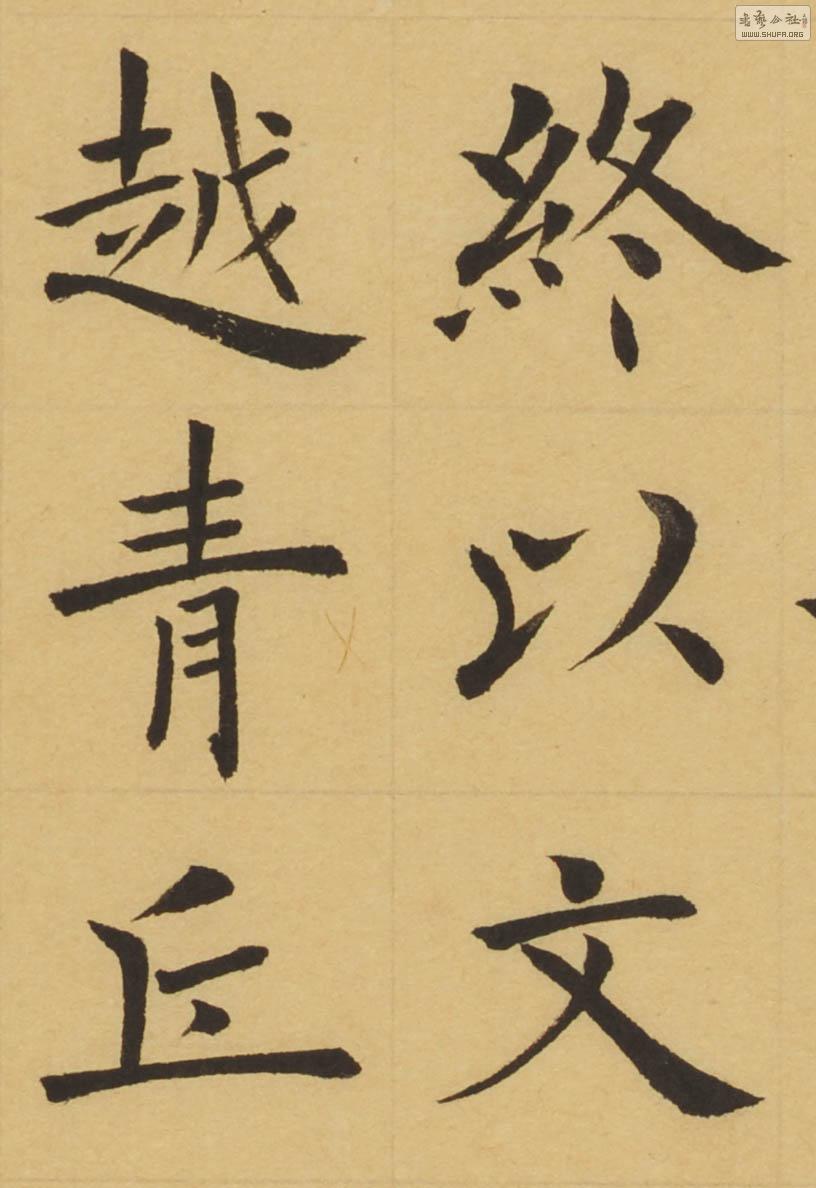 終以文
越青丘
書藝公社
WWW.SHUFA.ORG